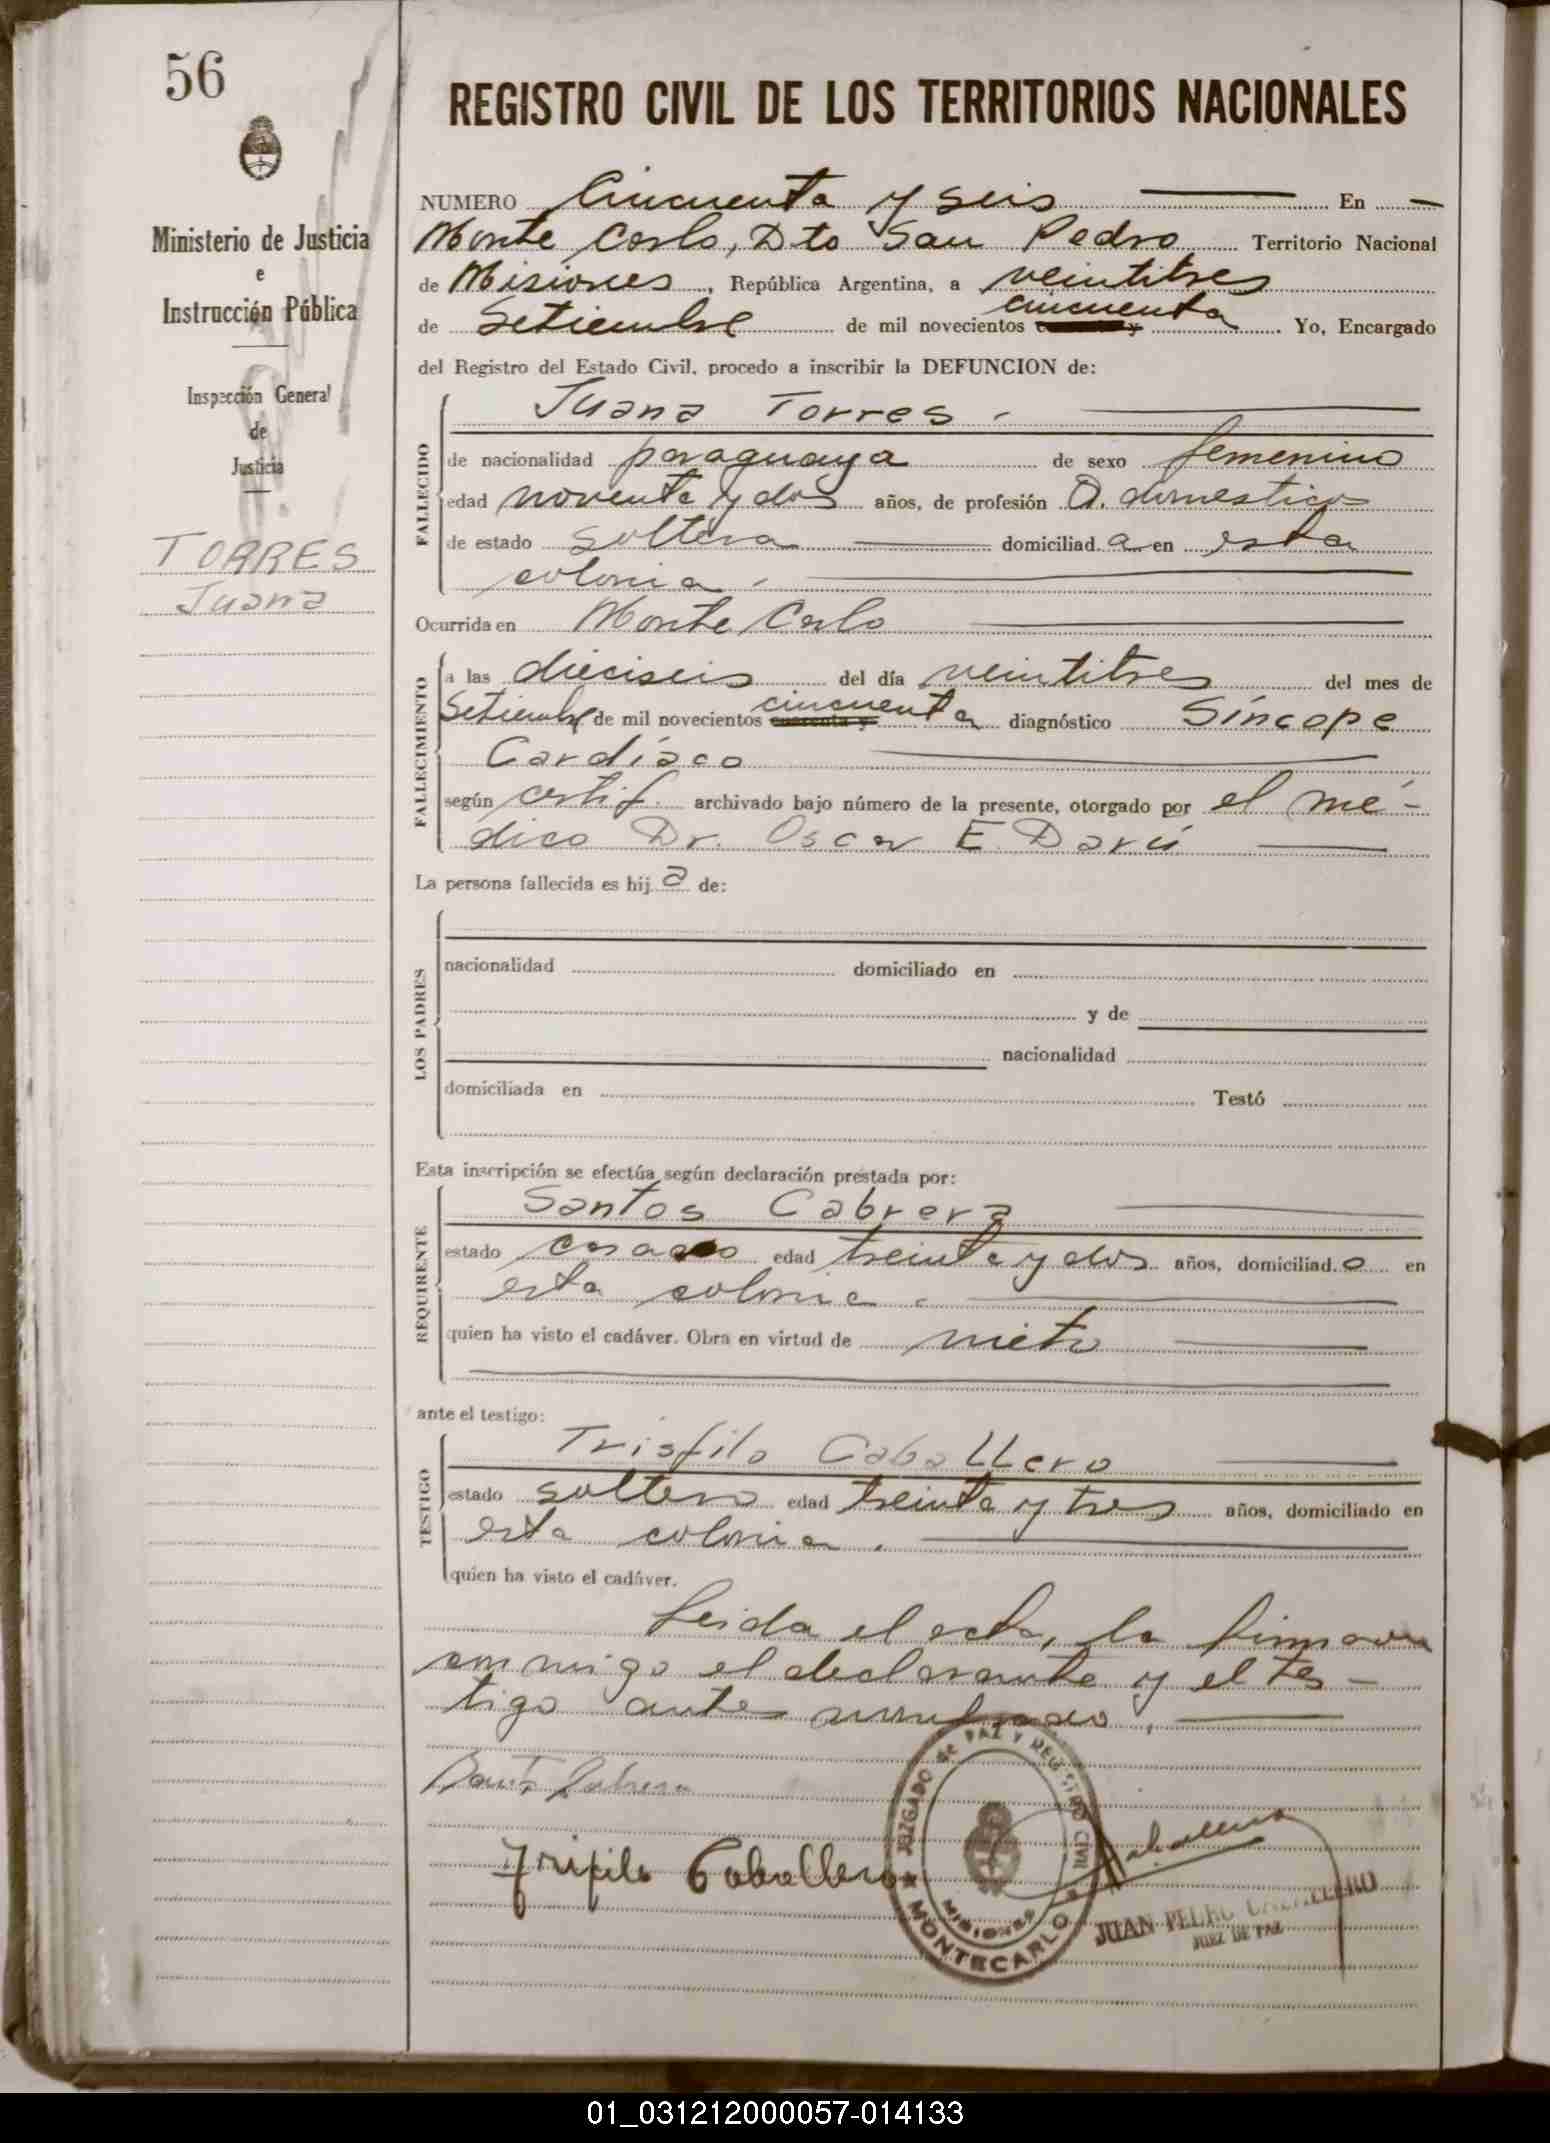 56
REGISTRO CIVIL DE LOS TERRITORIOS NACIONALES
Ministerio de Justicia
e
Instrucción Pública
Inspección General
de
Justicia
TORRES
Juana
NUMERO Cincuenta y seis En
Monte Carlo, Dto San Pedro Territorio Nacional
de Misiones, República Argentina, a veintitres
de Setiembre de mil novecientos cincuenta Yo, Encargado
del Registro del Estado Civil, procedo a inscribir la DEFUNCION de:
FALLECIDO
Juana Torres.
de nacionalidad paraguaya de sexo femenino
edad noventa y dos años, de profesión Q. domesticos
de estado soltera domiciliada en esta
colonia.
Ocurrida en Monte Carlo
FALLECIMIENTO
a las dieciseis del día veintitres del mes de
Setiembre de mil novecientos cincuenta diagnóstico Síncope
Cardíaco
según certif. archivado bajo número de la presente, otorgado por el mé-
dico Dr. Oscar E. Darú
La persona fallecida es hija de:
LOS PADRES
nacionalidad domiciliado en
y de
nacionalidad
domiciliada en Testó
Esta inscripción se efectúa según declaración prestada por:
REQUIRENTE
Santos Cabrera
estado casado edad treinta y dos años, domiciliado en
esta colonia.
quien ha visto el cadáver. Obra en virtud de nieto
ante el testigo:
TESTIGO
Trisfilo Caballero
estado soltero edad treinta y tres años, domiciliado en
esta colonia.
quien ha visto el cadáver.
Leida el acta, la firman
conmigo el declarante y el tes-
tigo antes nombrado.
Santos Cabrera
Trifilo Caballero
JUZGADO DE PAZ Y REGISTRO CIVIL
MISIONES
MONTECARLO
JUAN PEDRO CABALLERO
JUEZ DE PAZ
01_031212000057-014133